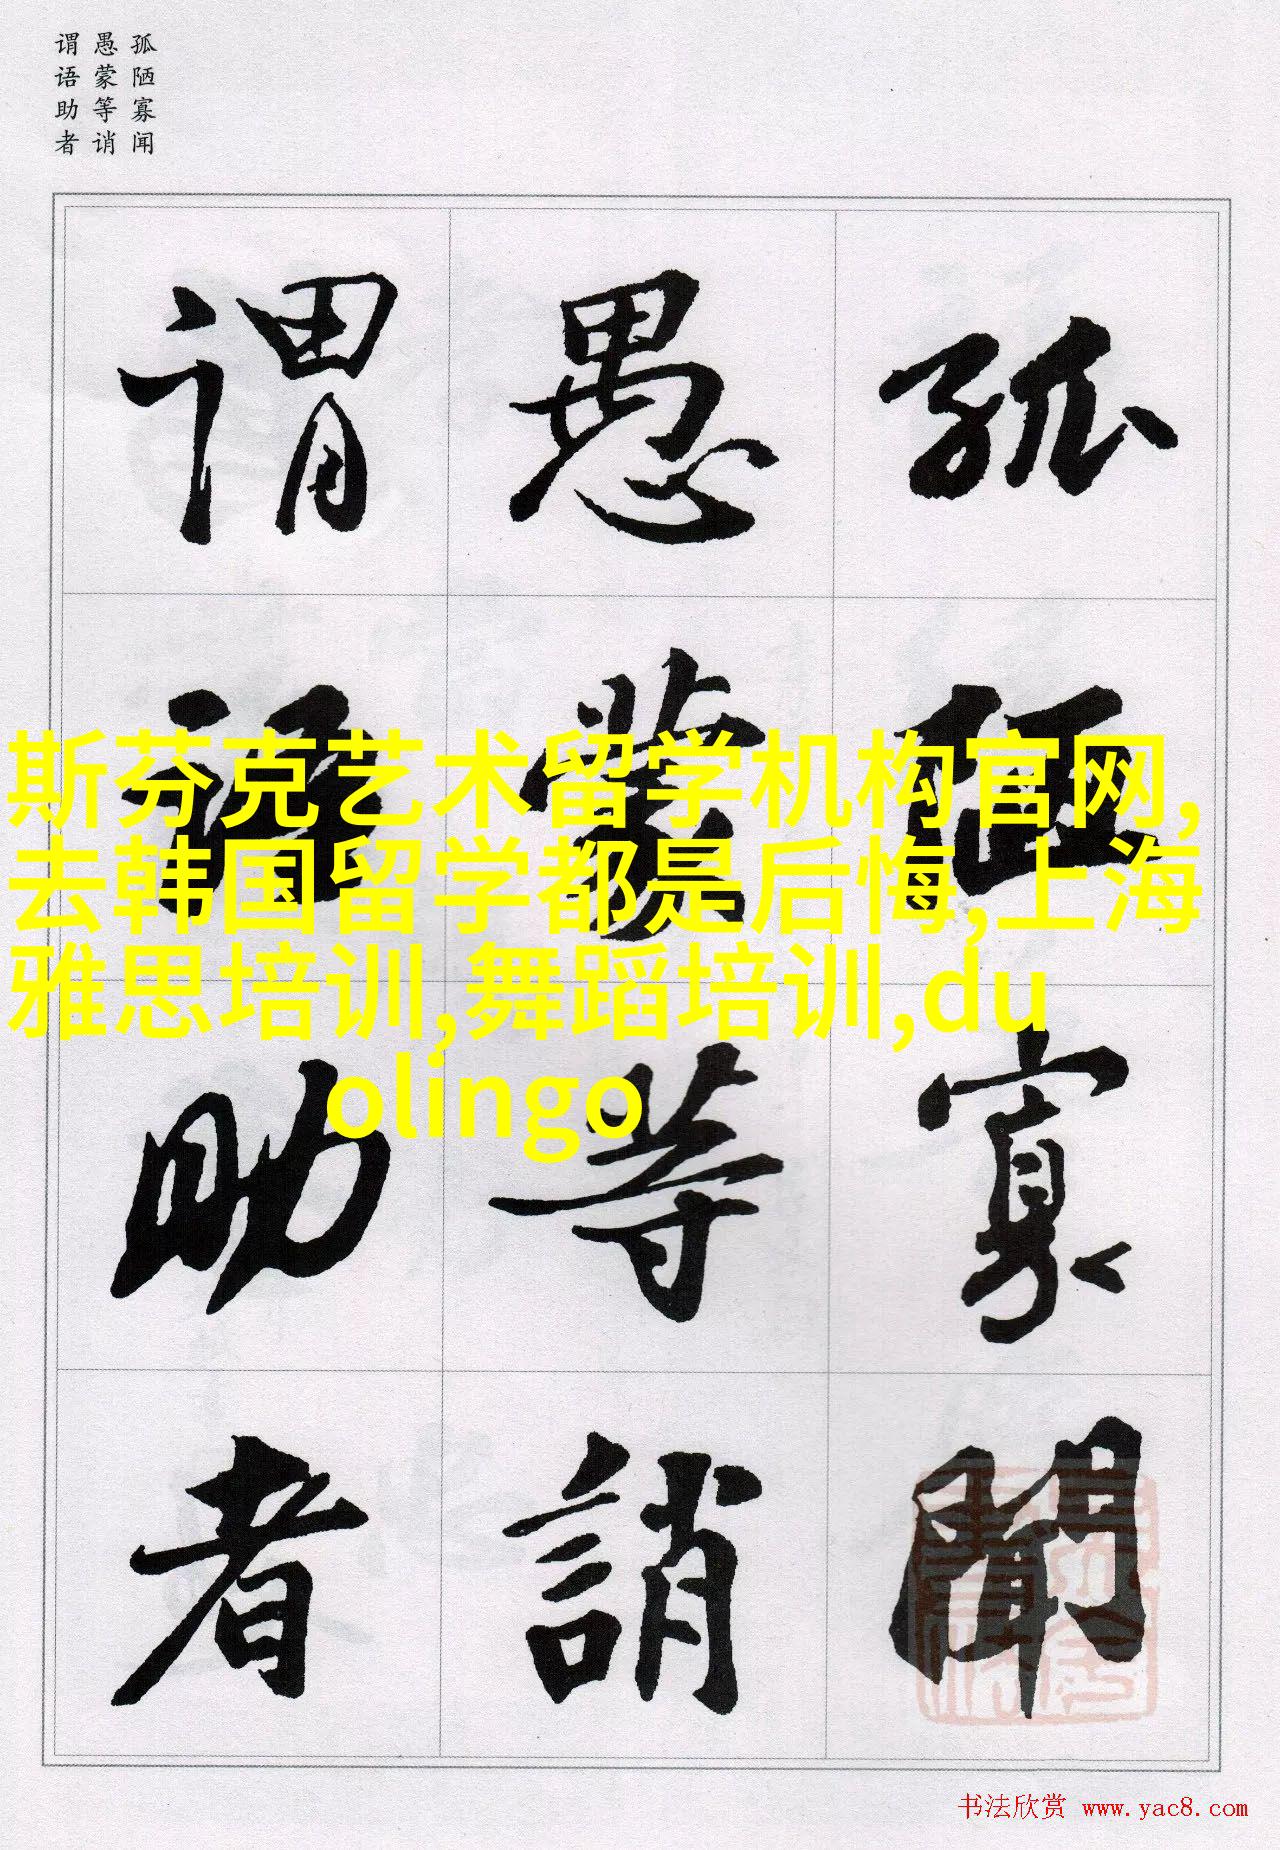 孤陋寡闻
愚蒙等诮
谓语助者
孤陋寡聞
愚蒙等誚
谓语助者
斯芬克艺术留学机构官网,
去韩国留学都是后悔,上海
雅思培训,舞蹈培训,du
olingo
书法欣赏 www.yac8.com